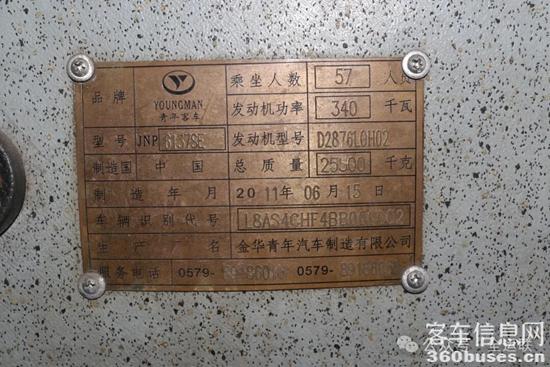 品牌 YOUNGMAN 青年客车 乘坐人数 57 人
发动机功率 340 千瓦
型号 JNP 6137SE 发动机型号 D2876LOH02
制造国 中国 总质量 25500 千克
制造年月 2011年06月15日
车辆识别代号
生产厂名 金华青年汽车制造有限公司
服务电话 0579- 0579-
客车信息网
360buses.cn